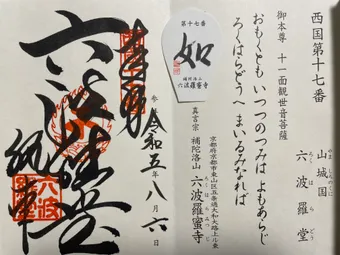 西国第十七番
山城国
やましろのくに
六波羅堂
ろくはらどう
御本尊 十一面観世音菩薩
おもくとも いつつのつみは よもあらじ
ろくはらどうへ まいるみなれば
京都府京都市東山区五条通大和大路上ル東
真言宗 補陀洛山 六波羅蜜寺
ろくはらみつじ
第十七番
如
補陀洛山
六波羅蜜寺
奉拝
参拝
令和五年八月六日
六波羅堂
六波